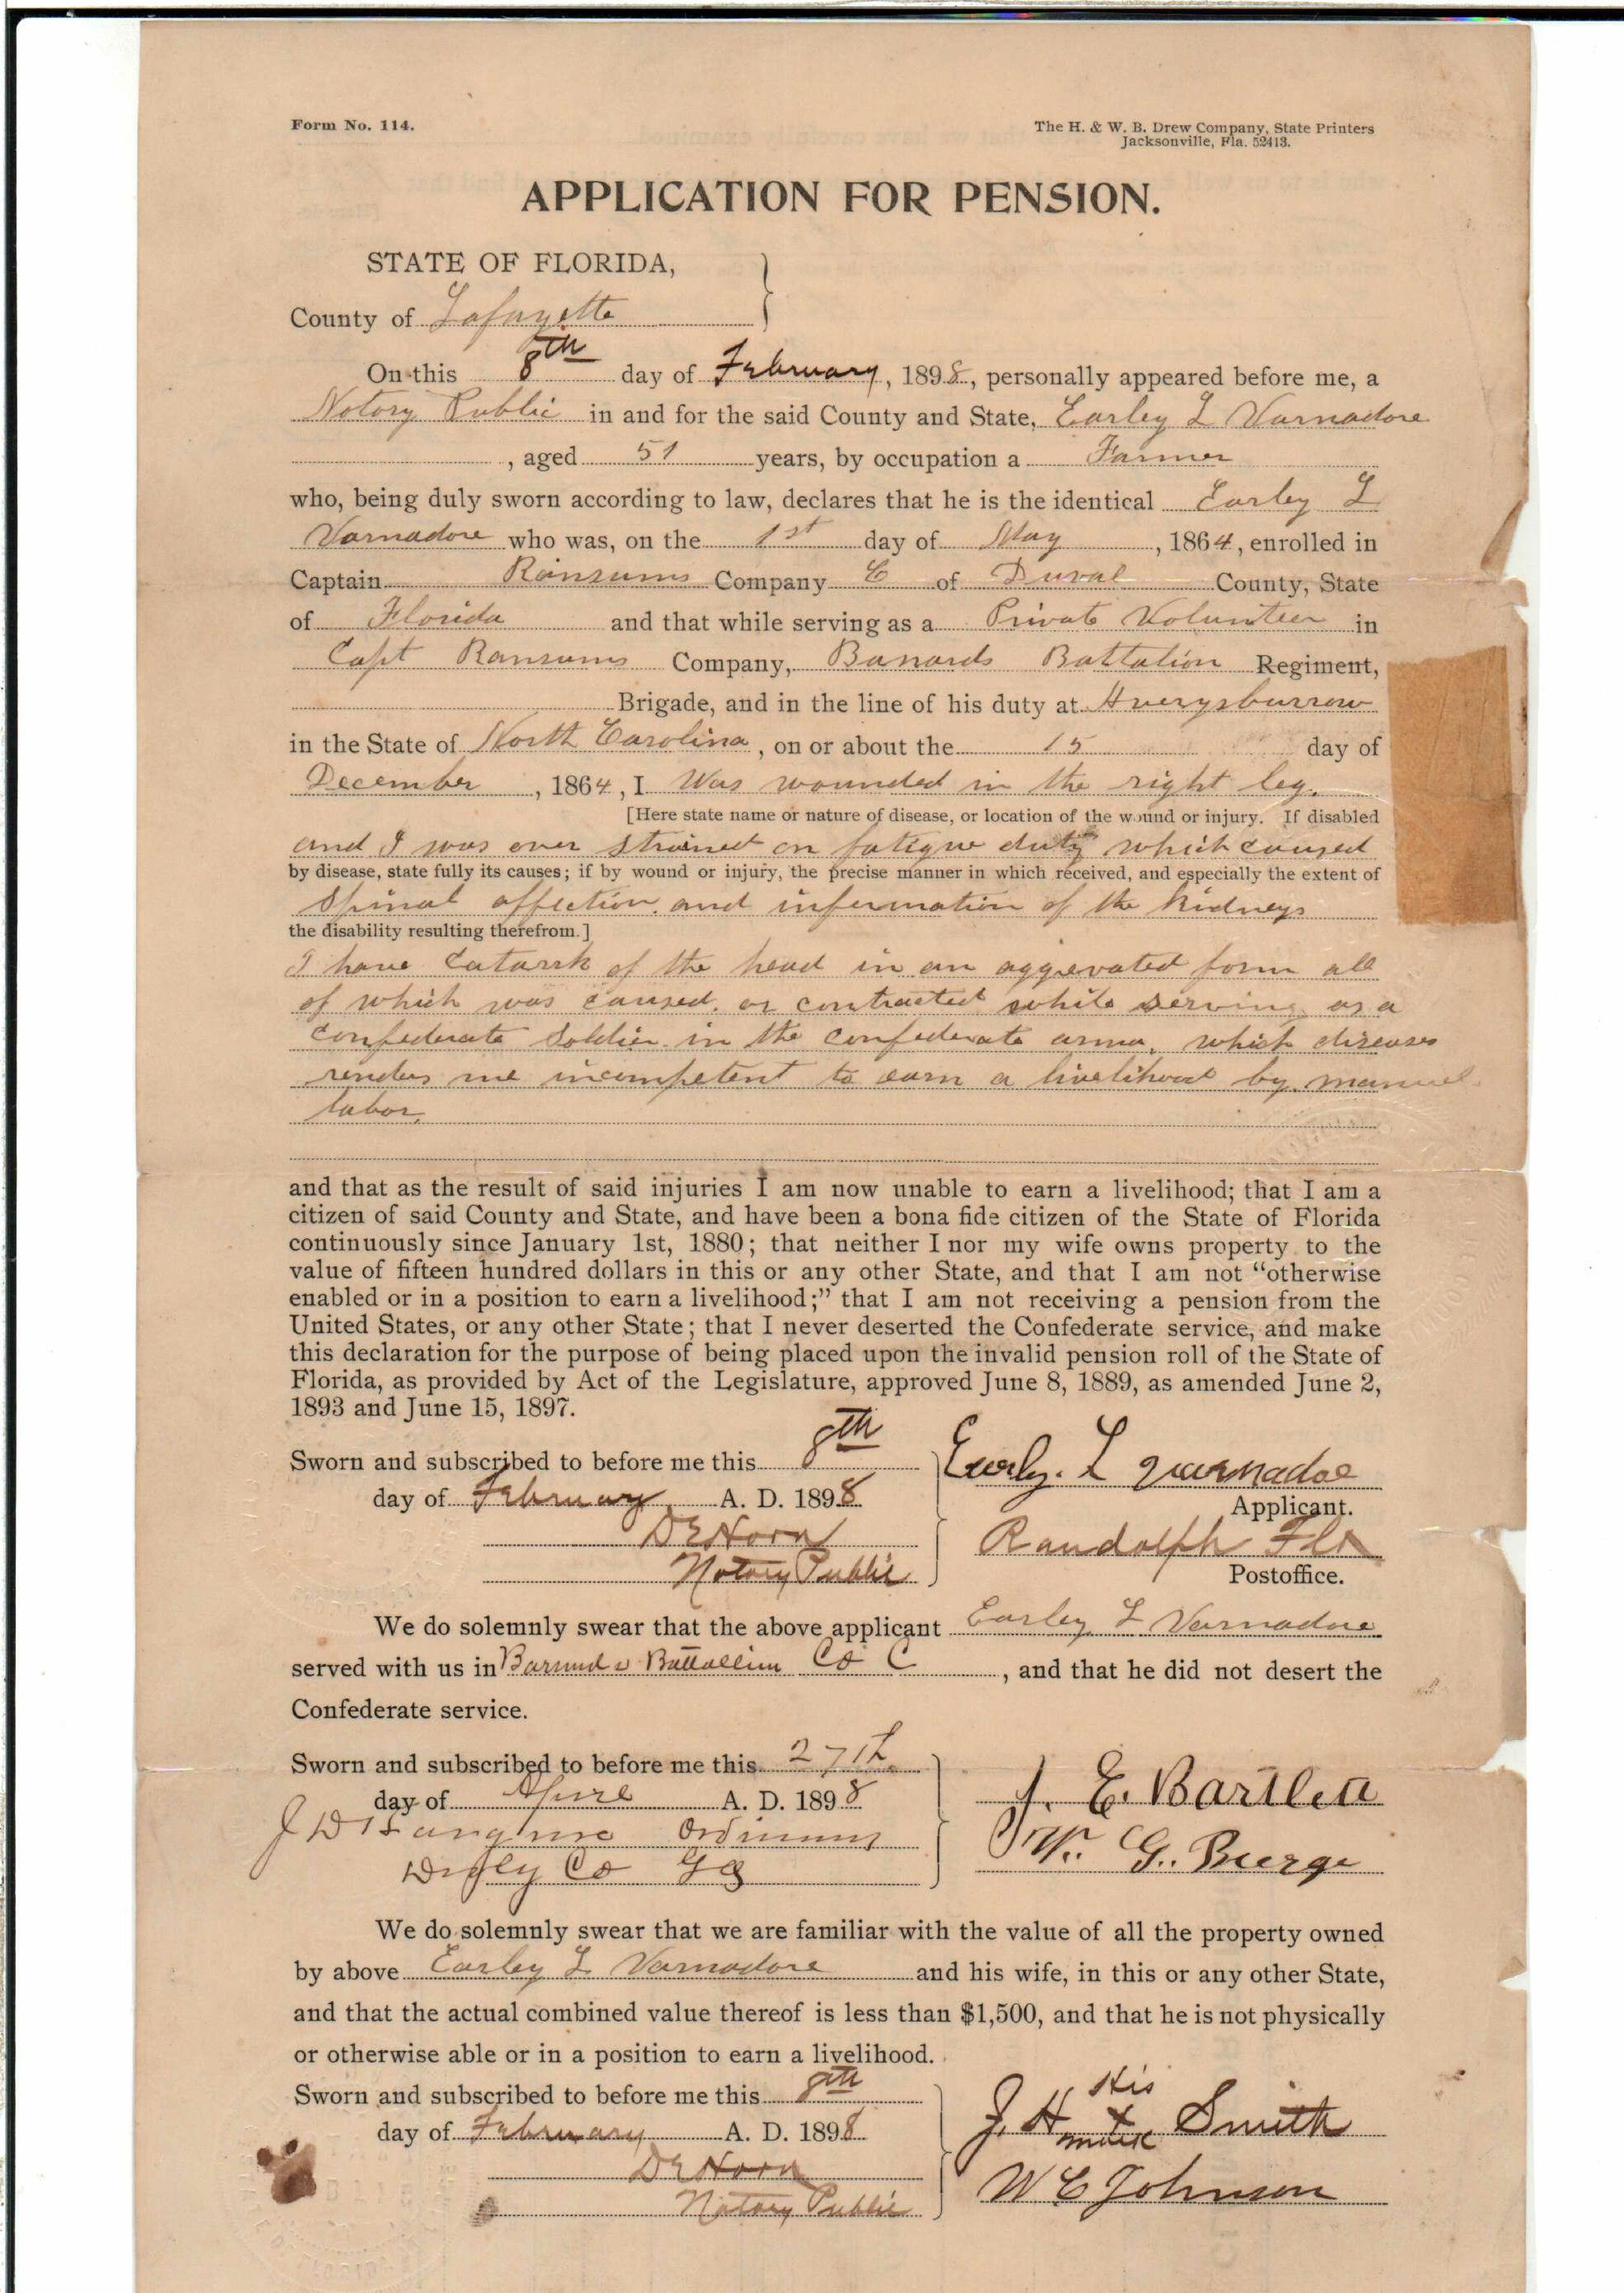 Form No. 114.
The H. & W. B. Drew Company, State Printers
Jacksonville, Fla. 52413.
APPLICATION FOR PENSION.
STATE OF FLORIDA,
County of Lafayette
On this 8th day of February, 1898, personally appeared before me, a
Notory Public in and for the said County and State, Earley L Varnadore
, aged 51 years, by occupation a Farmer
who, being duly sworn according to law, declares that he is the identical Earley L
Varnadore who was, on the 1st day of May, 1864, enrolled in
Captain Ransums Company C of Duval County, State
of Florida and that while serving as a Private Volunteer in
Capt Ransums Company, Bonards Battalion Regiment,
Brigade, and in the line of his duty at Averysburrow
in the State of North Carolina, on or about the 15 day of
December, 1864, I Was wounded in the right leg.
[Here state name or nature of disease, or location of the wound or injury. If disabled
and I was over strained on fatigue duty which caused
by disease, state fully its causes; if by wound or injury, the precise manner in which received, and especially the extent of
Spinal affection, and infermation of the Kidneys
the disability resulting therefrom.]
I have Catarrh of the head in an aggrevated form all
of which was caused, or contracted while serving as a
confederate Soldier in the confederate arma, which diseases
renders me incompetent to earn a livelihood by manuel
labor,
and that as the result of said injuries I am now unable to earn a livelihood; that I am a
citizen of said County and State, and have been a bona fide citizen of the State of Florida
continuously since January 1st, 1880; that neither I nor my wife owns property to the
value of fifteen hundred dollars in this or any other State, and that I am not "otherwise
enabled or in a position to earn a livelihood;" that I am not receiving a pension from the
United States, or any other State; that I never deserted the Confederate service, and make
this declaration for the purpose of being placed upon the invalid pension roll of the State of
Florida, as provided by Act of the Legislature, approved June 8, 1889, as amended June 2,
1893 and June 15, 1897.
Sworn and subscribed to before me this 8th
day of February A. D. 1898
D E Horn
Notary Public
Early. L
Applicant.
Randolph Fla
Postoffice.
We do solemnly swear that the above applicant Earley L Varnadore
served with us in Battallion Co C, and that he did not desert the
Confederate service.
Sworn and subscribed to before me this 27th
day of A. D. 1898
Co Ga
J. E. Bartlett
W. G. Burge
We do solemnly swear that we are familiar with the value of all the property owned
by above Earley L Varnadore and his wife, in this or any other State,
and that the actual combined value thereof is less than $1,500, and that he is not physically
or otherwise able or in a position to earn a livelihood.
Sworn and subscribed to before me this 8th
day of February A. D. 1898
D E Horn
Notary Public
His
J. H X Smith
mark
W C Johnson